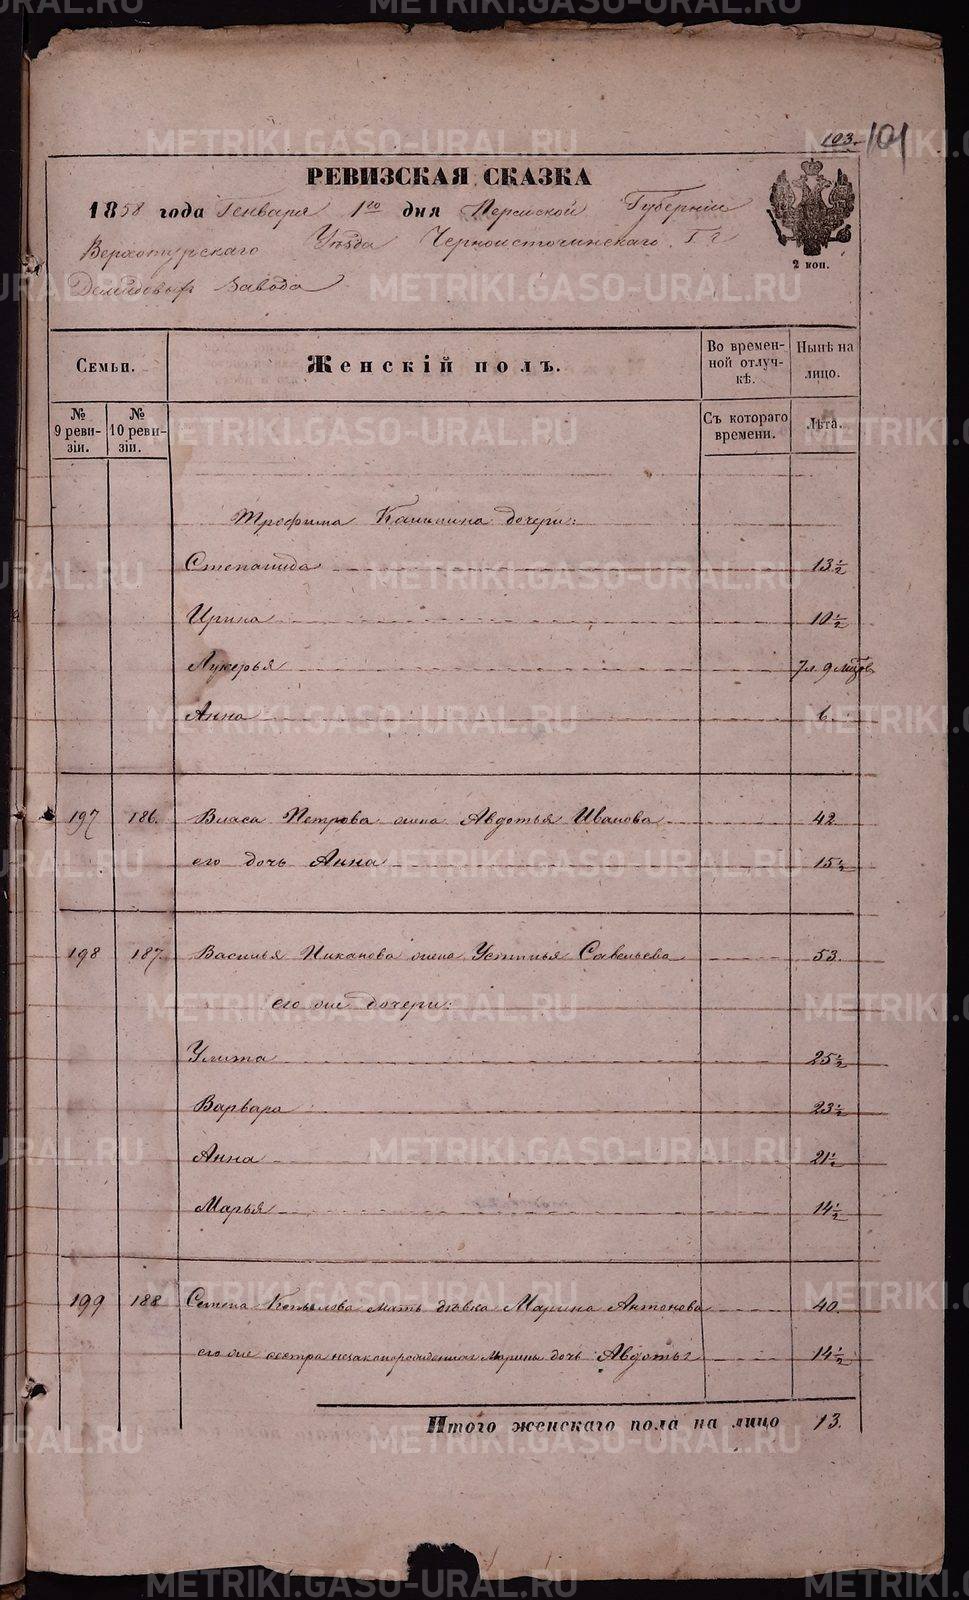 103. 101
РЕВИЗСКАЯ СКАЗКА
1858 года Генваря 1го дня Пермской Губерніи
Верхотурскаго Уѣзда Черноисточинскаго Г г
Демидовыхъ Завода
2 коп.
Семьи.
Женскій полъ.
Во времен-
ной отлуч-
кѣ.
Нынѣ на
лицо.
№
9 реви-
зіи.
№
10 реви-
зіи.
Съ котораго
времени.
Лѣта.
Трофима дочери:
Степанида 13 1/2
Ирина 10 1/2
Лукерья 7 л. 9 мцов
Анна 6.
197 186. Власа Петрова жена Авдотья Иванова 42
его дочь Анна 15 1/2
198 187. Василья Никанова жена Устинья Савельева 53.
его же дочери:
Улита 25 1/2
Варвара 23 1/2
Анна 21 1/2
Марья 14 1/2
199 188 Семена Копылова мать дѣвка Марина Антонова 40.
его же сестра незаконорожденная Марины дочь Авдотья 14 1/2
Итого женскаго пола на лицо 13.
METRIKI.GASO-URAL.RU